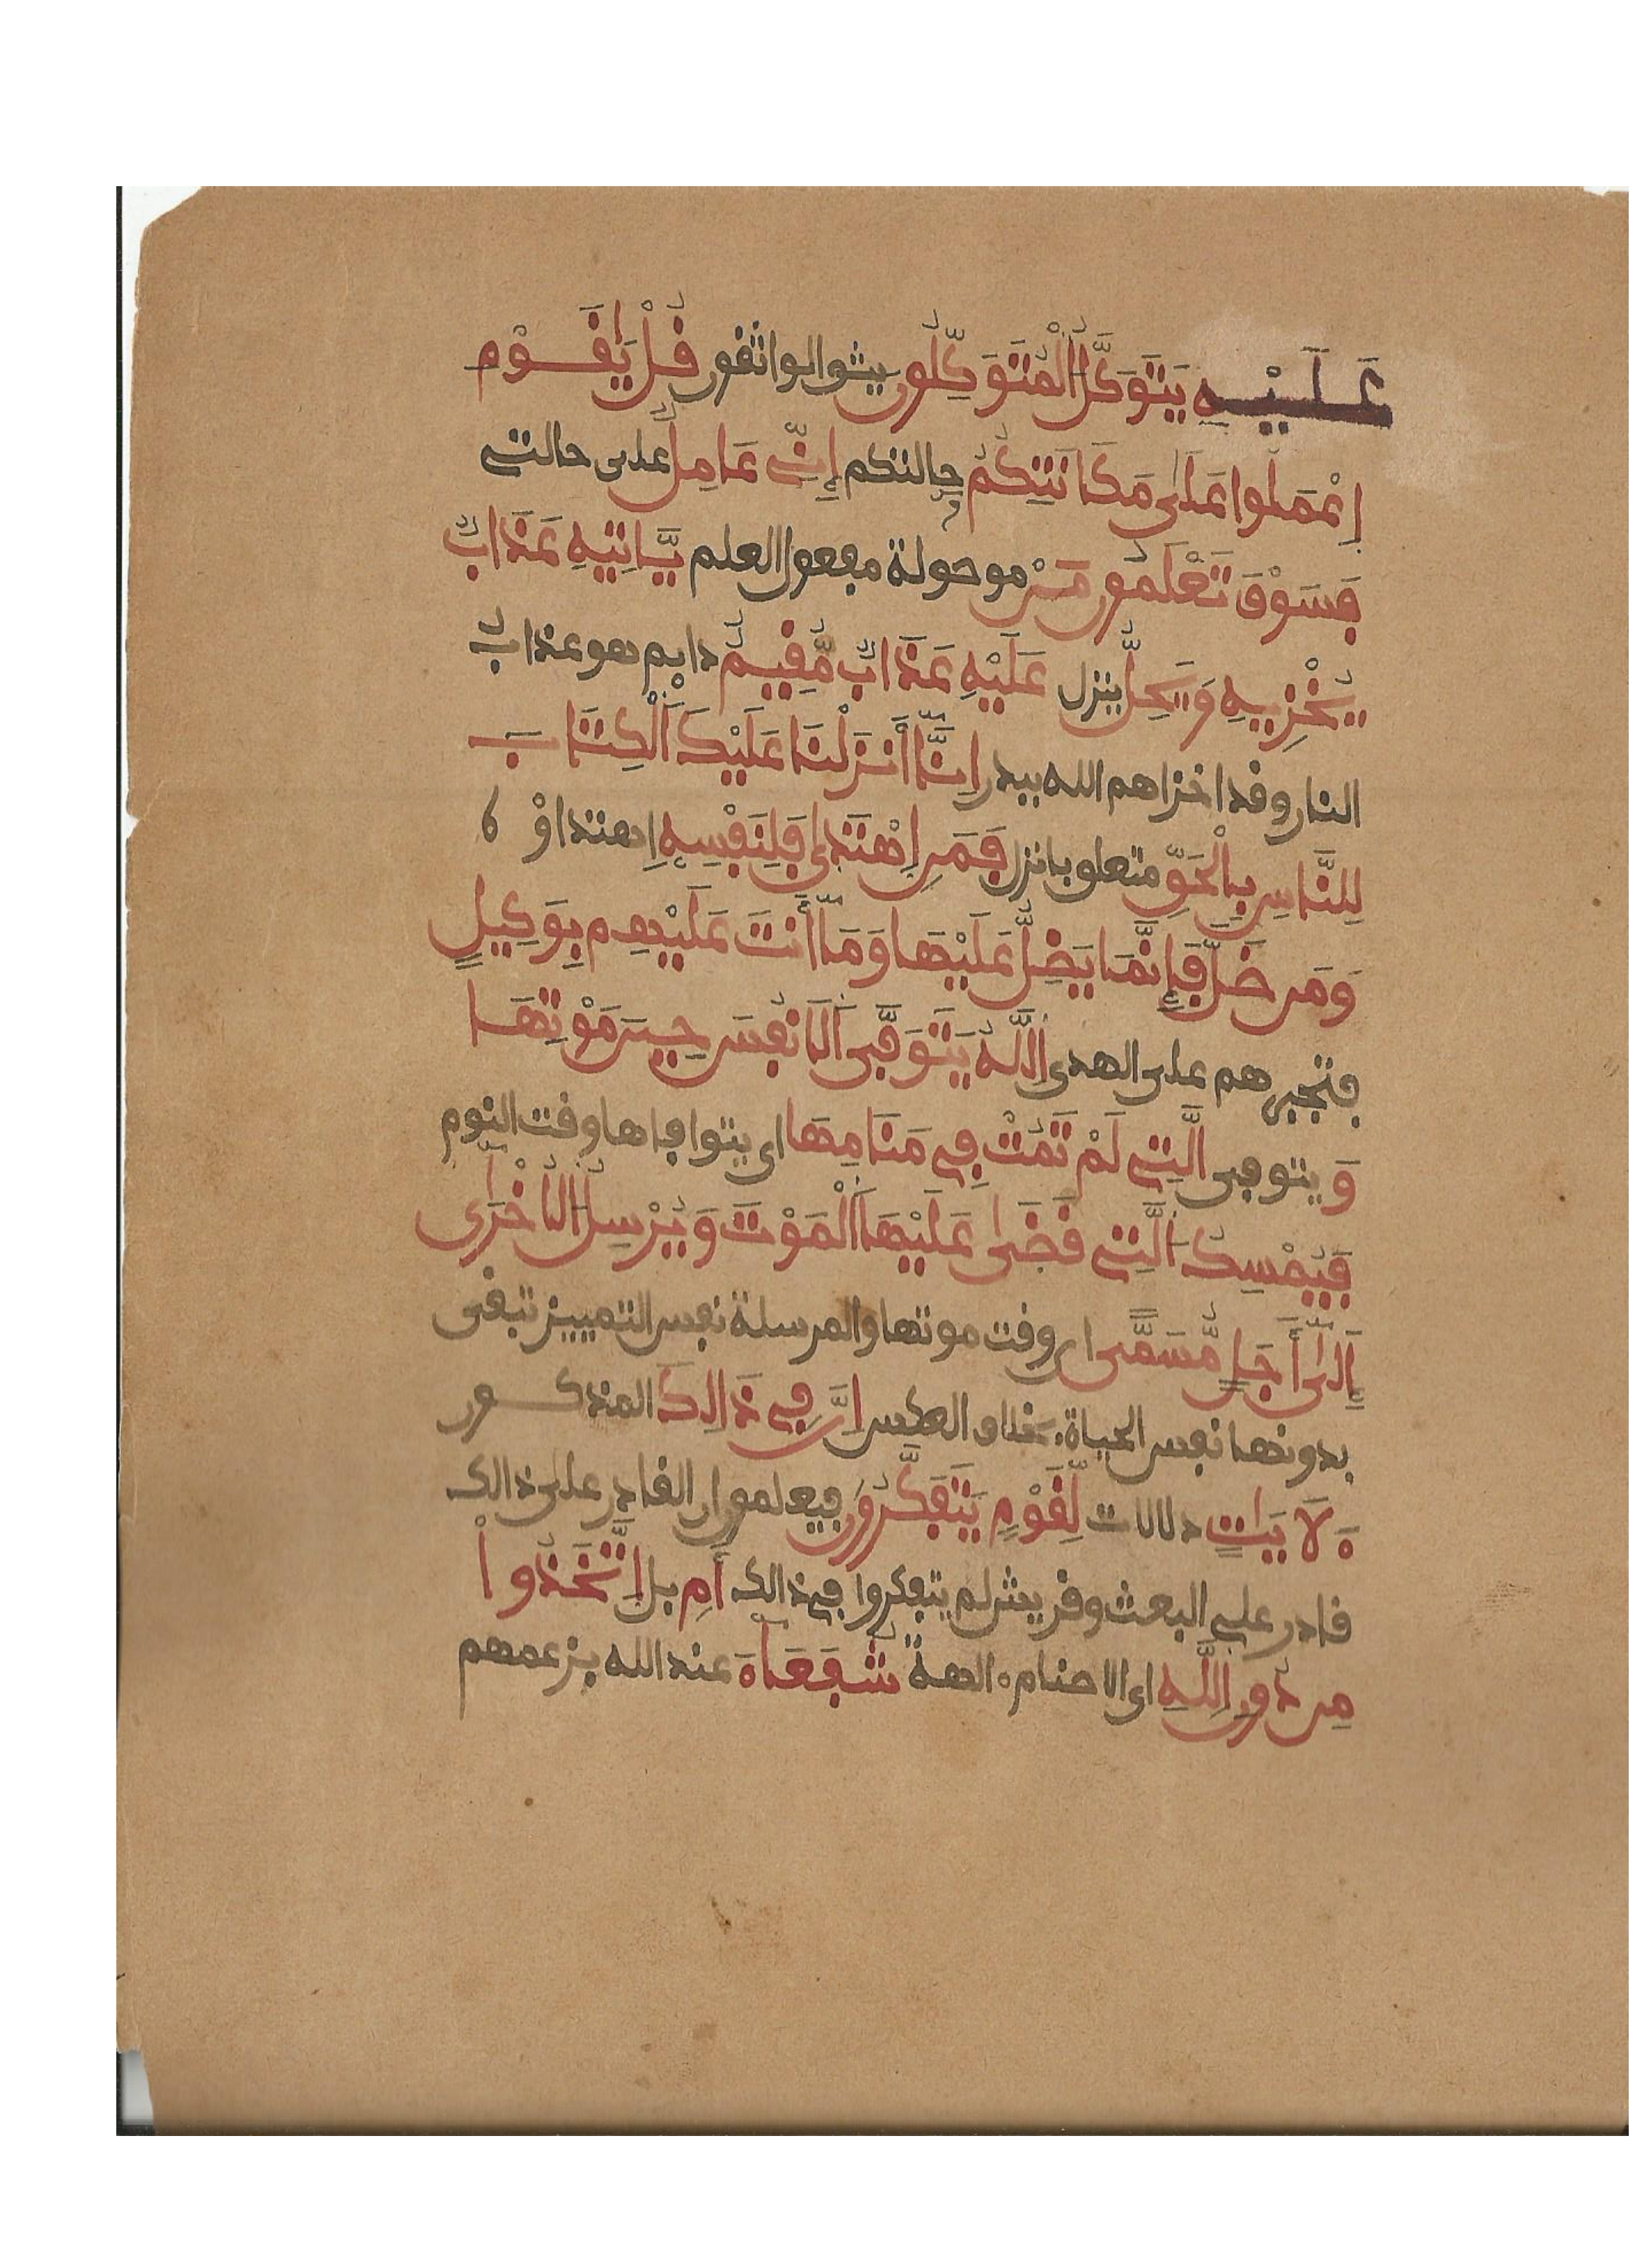 عَلَيْهِ يَتَوَكَّلُ الْمُتَوَكِّلُونَ يثق الواثقون قُلْ يَٰقَوْمِ
اِعْمَلُوا عَلَىٰ مَكَانَتِكُمْ حالتكم إِنِّي عَامِلٌ على حالتي
فَسَوْفَ تَعْلَمُونَ مَنْ موصولة مفعول العلم يَّاتِيهِ عَذَابٌ
يُخْزِيهِ وَيَحِلُّ ينزل عَلَيْهِ عَذَابٌ مُّقِيمٌ دايم هو عذاب
النار وقد اخزاهم الله ببدر إِنَّا أَنزَلْنَا عَلَيْكَ الْكِتَابَ
لِلنَّاسِ بِالْحَقِّ متعلق بانزل فَمَنِ اِهْتَدَىٰ فَلِنَفْسِهِ اِهتداؤه
وَمَن ضَلَّ فَإِنَّمَا يَضِلُّ عَلَيْهَا وَمَا أَنتَ عَلَيْهِم بِوَكِيلٍ
فتجبرهم على الهدى اللَّهُ يَتَوَفَّى الَانفُسَ حِينَ مَوْتِهَا
وَ يتوفى الَّتِي لَمْ تَمُتْ فِي مَنَامِهَا اى يتوافاها وقت النوم
فَيُمْسِكُ الَّتِي قَضَىٰ عَلَيْهَا الْمَوْتَ وَيُرْسِلُ الُاخْرَىٰ
إِلَىٰ أَجَلٍ مُّسَمًّى اى وقت موتها والمرسلة نفس التمييز تبقى
بدونها نفس الحياة بخلاف العكس إِنَّ فِي ذَالِكَ المذكور
ءَلَايَٰتٍ دلالات لِّقَوْمٍ يَتَفَكَّرُونَ فيعلمون ان القادر على ذالك
قادر على البعث وقريش لم يتفكروا في ذالك أَمِ بل اِتَّخَذُوا
مِن دُونِ اللَّهِ اى الاصنام ءالهة شُفَعَاءَ عند الله بزعمهم